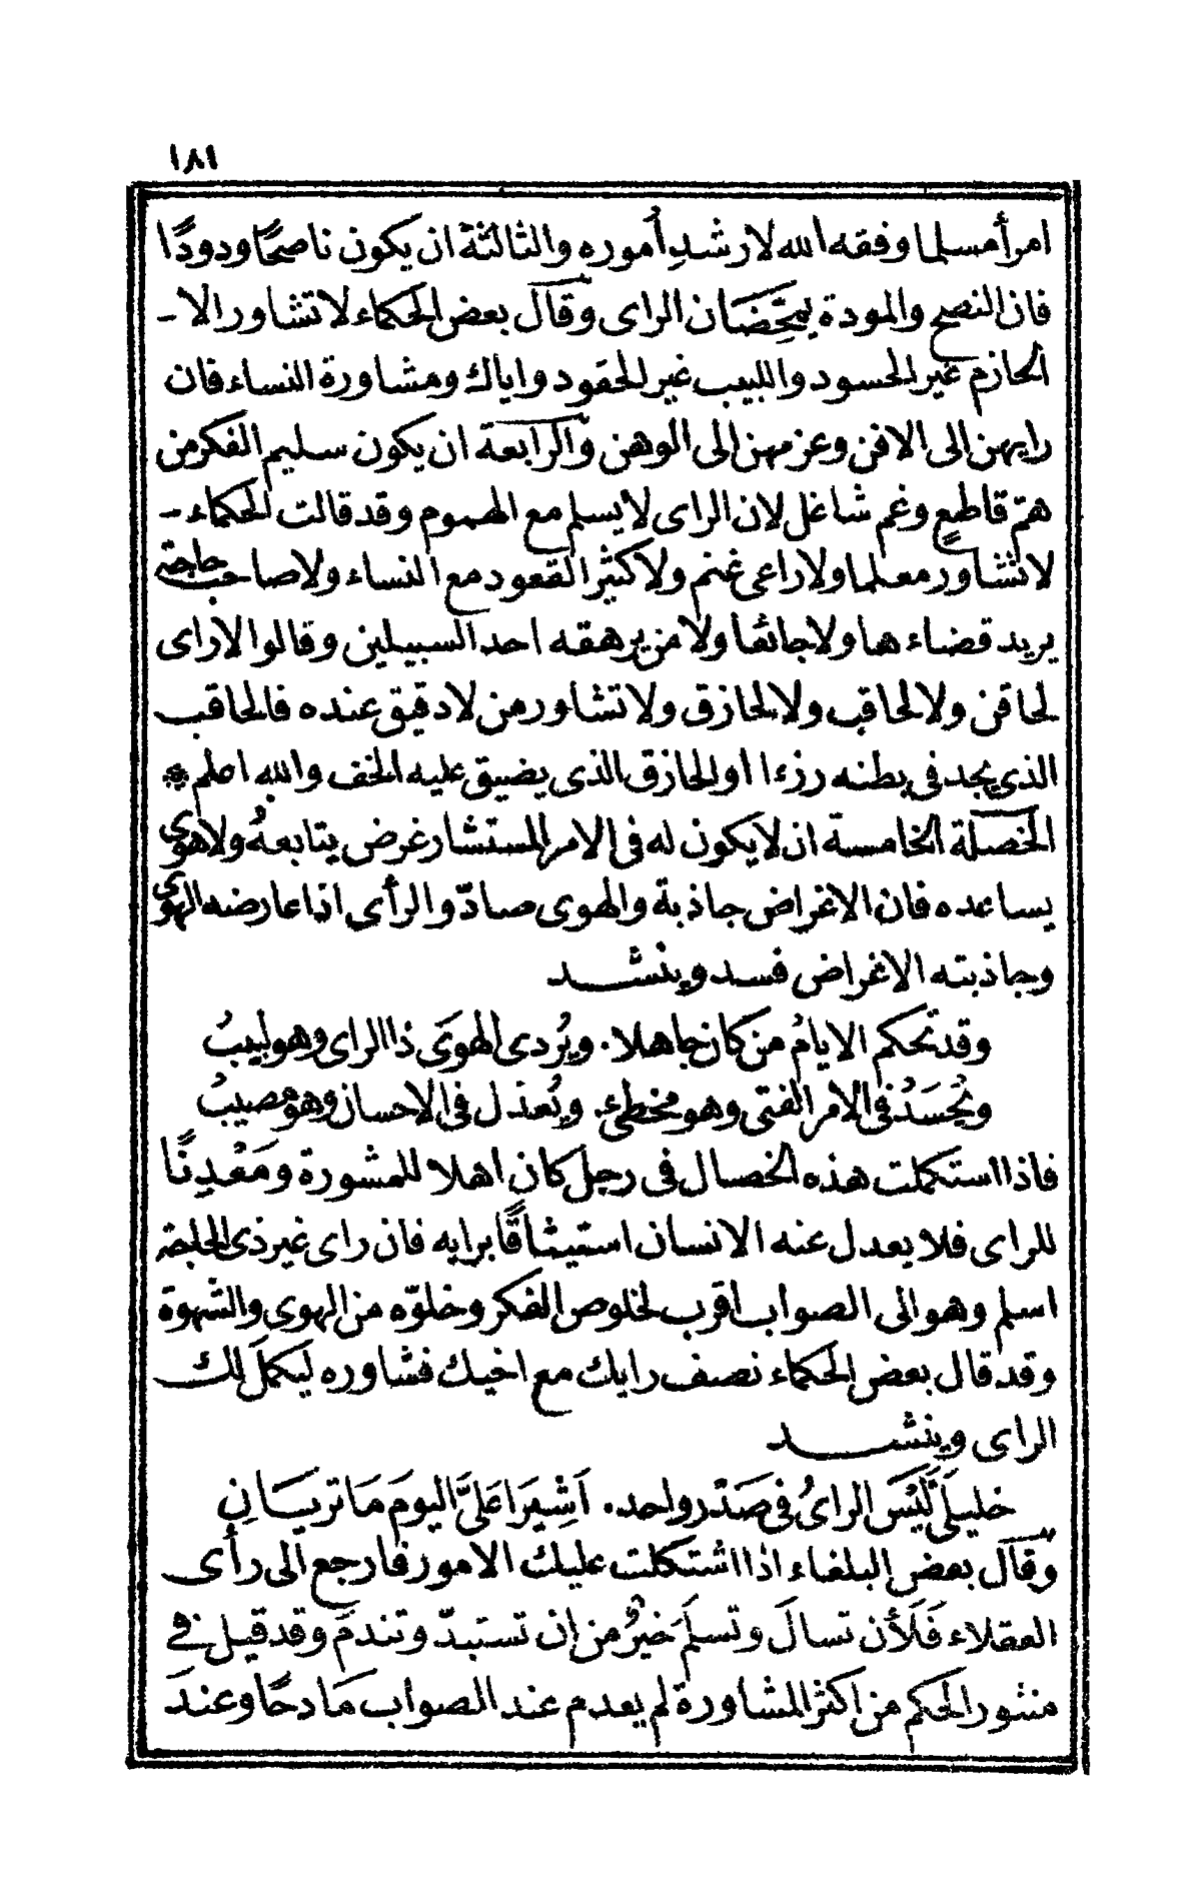 ١٨١
امرأ مسلما وفقه الله لارشدِ أموره والثالثة ان يكون ناصحًا ودودًا
فان النصح والمودة يمحِّضَان الراى وقال بعض الحكماء لا تشاور الا -
الحازم غير الحسود واللبيب غير الحقود واياك ومشاورة النساء فان
رايهن الى الافن وعزمهن الى الوهن والرابعة ان يكون سليم الفكر من
همّ قاطعٍ وغم شاغل لان الراى لا يسلم مع الهموم وقد قالت الحكماء -
لا تشاور معلما ولا راعى غنم ولا كثير القعود مع النساء ولا صاحب حاجة
يريد قضاءها ولا جائعًا ولا من يرهقه احد السبيلين وقالوا لا راى
لحاقن ولا لحاقب ولا لحازق ولا تشاور من لا دقيق عنده فالحاقب
الذى يجد فى بطنه رزءا اوالحازق الذى يضيق عليه الخف والله اعلم *
الخصلة الخامسة ان لا يكون له فى الامر المستشار غرض يتابعهُ ولا هوى
يساعده فان الاغراض جاذبة والهوى صادّ والرأى اذا عارضه الهوى
وجاذبته الاغراض فسد وينشد
وقد تحكم الايامُ من كان جاهلا . ويُردى الهوَى ذا الراى وهو لبيبُ
ويُحسَدُ فى الامر الفتى وهو مخطئ . ويُعذل فى الاحسان وهو مصيبُ
فاذا استكملت هذه الخصال فى رجل كان اهلا للمشورة ومَعْدِنًا
للراى فلا يعدل عنه الانسان استيثاقًا برايه فان راى غير ذى الحاجة
اسلم وهو الى الصواب اقرب لخلوص الفكر وخلوّه من الهوى والشهوة
وقد قال بعض الحكماء نصف رايك مع اخيك فشاوره ليكملَ لك
الراى وينشد
خليلَىَّ لَيْسَ الراىُ فى صَدْر واحد . اَشِيرَا عَلىَّ اليومَ مَا تريَانِ
وقال بعض البلغاء اذا اشتكلت عليك الامور فارجع الى رأى
العقلاء فَلَأن تسالَ وتسلَمَ خيرٌ من ان تستبدّ وتندمَ وقد قيل فى
منثور الحكم من اكثر المشاورة لم يعدم عند الصواب مَادحًا وعندَ